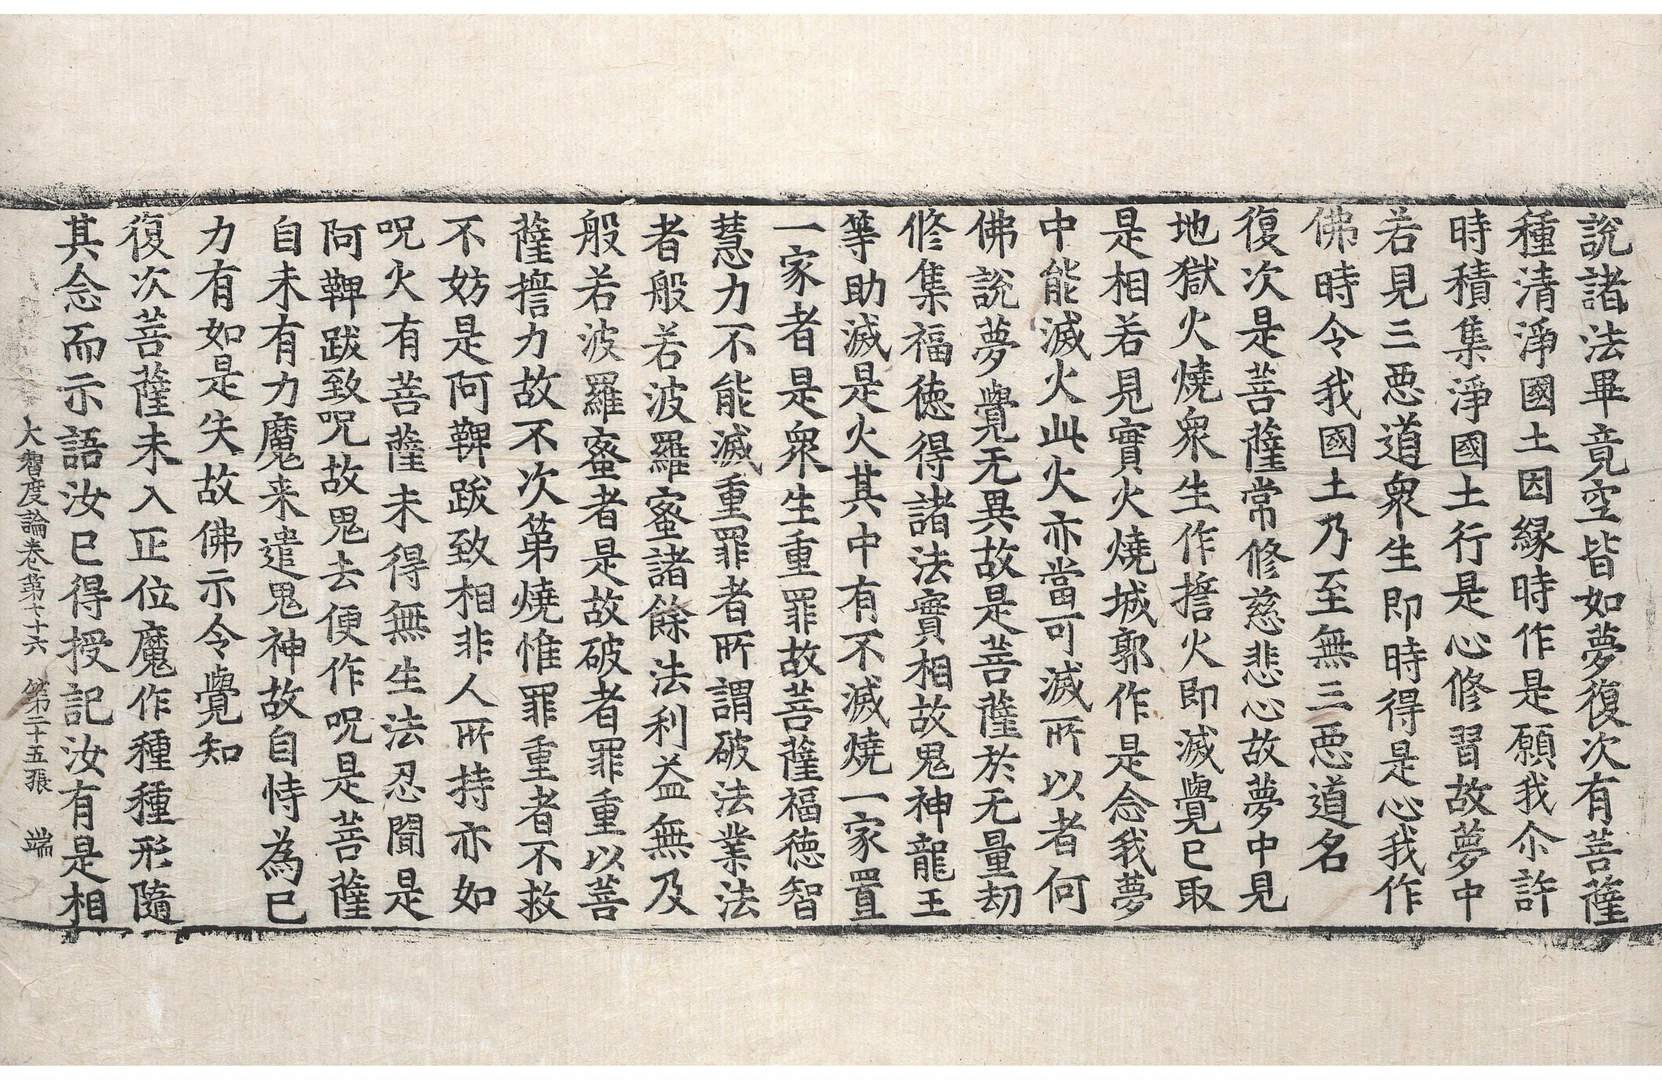 說諸法畢竟空皆如夢復次有菩薩
種清淨國土因緣時作是願我尒許
時積集淨國土行是心修習故夢中
若見三惡道衆生即時得是心我作
佛時令我國土乃至無三惡道名
復次是菩薩常修慈悲心故夢中見
地獄火燒衆生作擔火即滅覺已取
是相若見實火燒城郭作是念我夢
中能滅火此火亦當可滅所以者何
佛說夢覺无異故是菩薩於无量劫
修集福徳得諸法實相故鬼神龍王
等助滅是火其中有不滅燒一家置
一家者是衆生重罪故菩薩福徳智
慧力不能滅重罪者所謂破法業法
者般若波羅蜜諸餘法利益無及
般若波羅蜜者是故破者罪重以菩
薩擔力故不次第燒惟罪重者不救
不妨是阿鞞跋致相非人所持亦如
呪火有菩薩未得無生法忍聞是
阿鞞跋致呪故鬼去便作呪是菩薩
自未有力魔来遣鬼神故自恃為已
力有如是失故佛示令覺知
復次菩薩未入正位魔作種種形隨
其念而示語汝已得授記汝有是相
大智度論卷第七十六 第二十五張 端